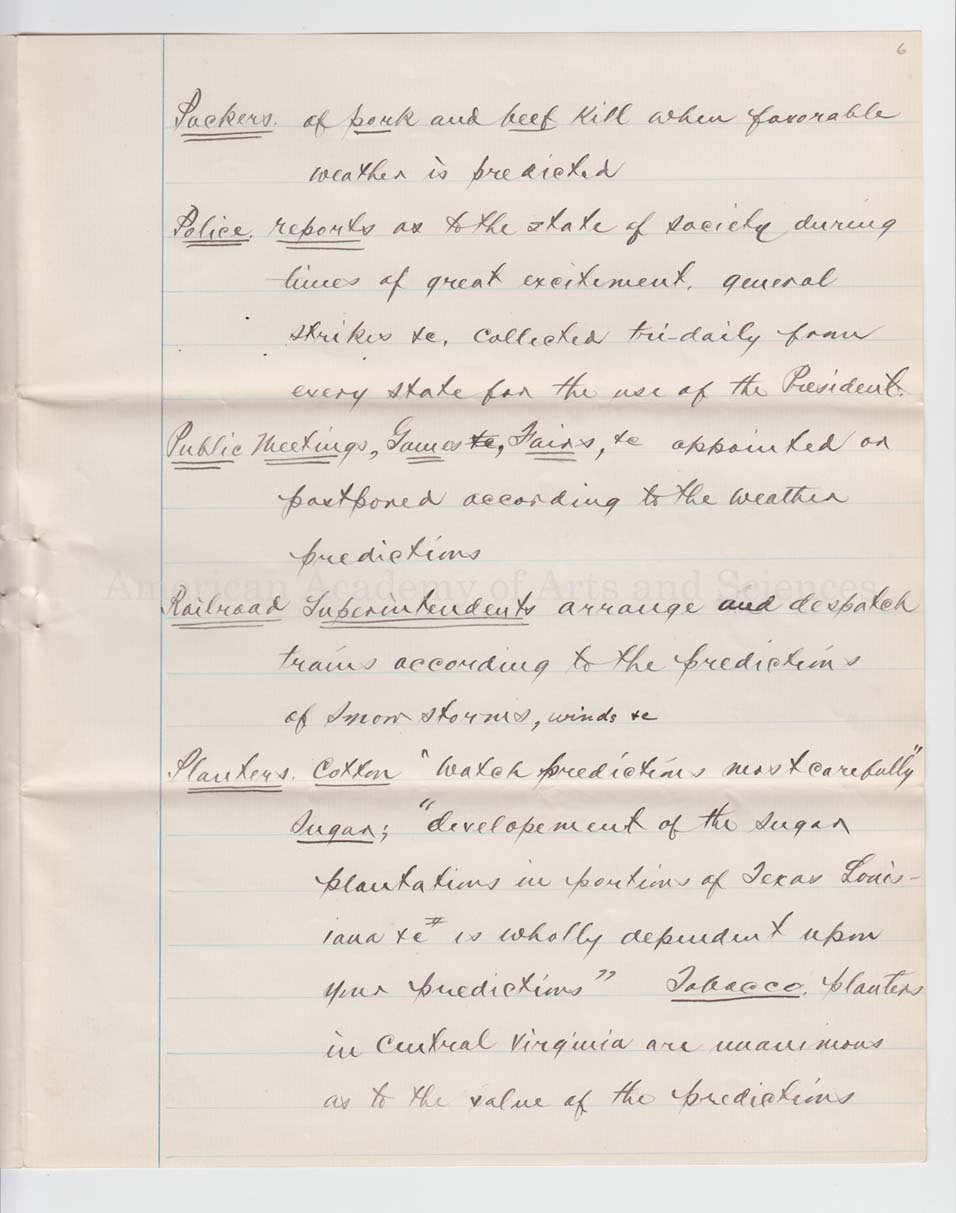 6
Packers. of pork and beef kill when favorable
weather is predicted
Police. reports as to the state of society during
times of great excitement. general
strikes &c. collected tri-daily from
every state for the use of the President.
Public Meetings, Games &c, Fairs, &c appointed or
postponed according to the weather
predictions
American Academy of Arts and Sciences
Railroad Superintendents arrange and despatch
trains according to the predictions
of snow storms, winds &c
Planters. Cotton "watch predictions most carefully"
Sugar; "developement of the sugar
plantations in portions of Texas Louis-
iana &c # is wholly dependent upon
your predictions" Tobacco. planters
in Central Virginia are unanimous
as to the value of the predictions